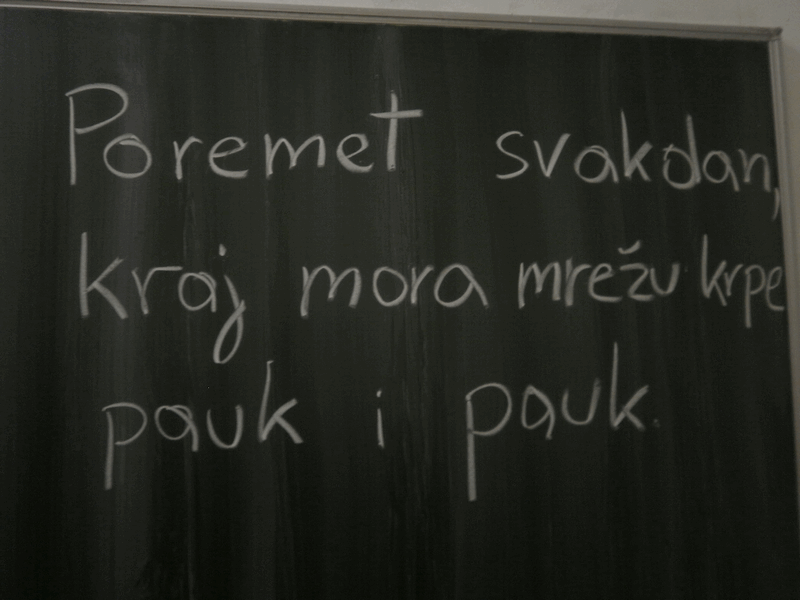 Poremet svakdan,
kraj mora mrežu krpe
pauk i pauk.